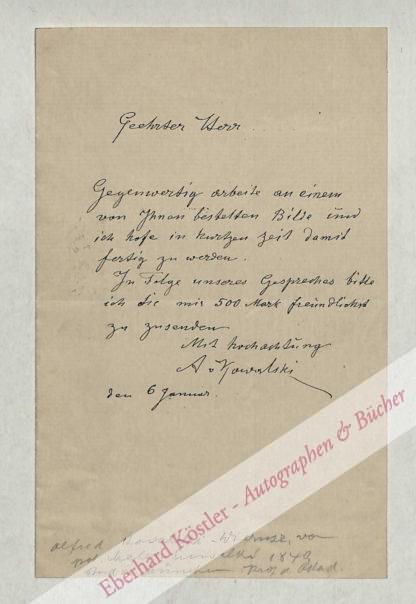 Geehrter Herr.
Gegenwertig arbeite an einem
von Ihnen bestelten Bilde und
ich hofe in kurtzen Zeit damit
fertig zu werden.
In Folge unseres Gespreches bitte
ich die mir 500 Mark freundlichst
zu zusenden
Mit hochachtung
A v Kowalski
den 6 Januar.
alfred von
1849
München Prof. a.
Eberhard Köstler - Autographen & Bücher